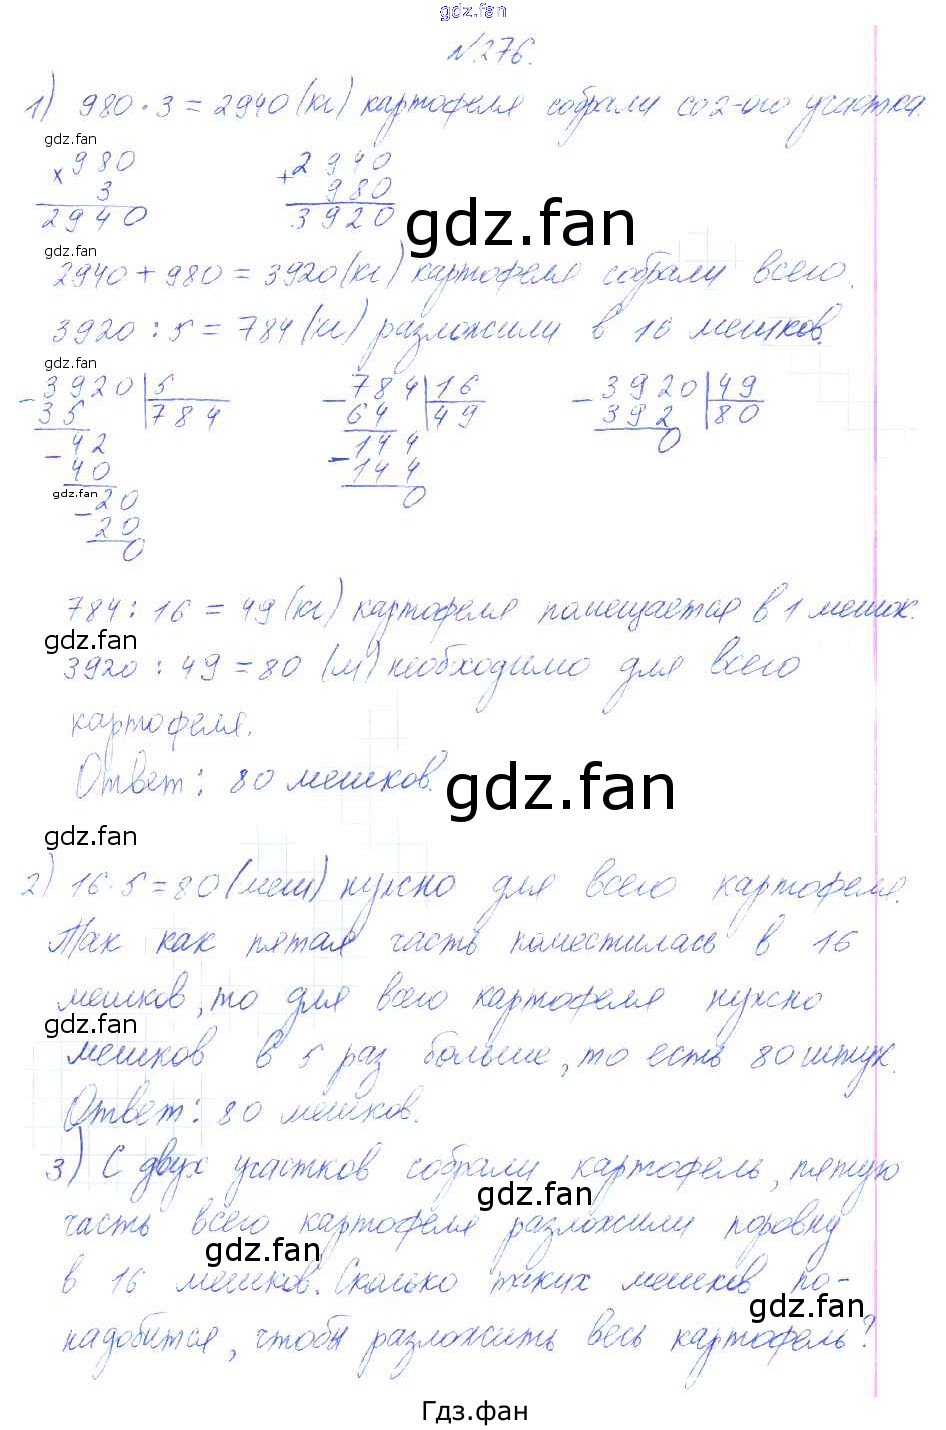 gdz.fan
№276.
1) 980·3=2940(кг) картофеля собрали со 2-ого участка.
gdz.fan
× 980   + 2940
3   980
2940   3920
gdz.fan
gdz.fan
2940+980=3920(кг) картофеля собрали всего.
3920:5=784(кг) разложили в 16 мешков.
gdz.fan
- 3920 | 5   - 784 | 16   - 3920 | 49
35   784   64   49   392   80
- 42   - 144   0
40   144
gdz.fan
- 20   0
20
0
784:16=49(кг) картофеля помещается в 1 мешок.
gdz.fan
3920:49=80(м) необходимо для всего
картофеля.
Ответ: 80 мешков.
gdz.fan
gdz.fan
2) 16·5=80(меш) нужно для всего картофеля.
Так как пятая часть поместилась в 16
мешков, то для всего картофеля нужно
gdz.fan
мешков в 5 раз больше, то есть 80 штук.
Ответ: 80 мешков.
3) С двух участков собрали картофель, пятую
gdz.fan
часть всего картофеля разложили поровну
gdz.fan
в 16 мешков. Сколько таких мешков по-
gdz.fan
надобится, чтобы разложить весь картофель?
Гдз.фан